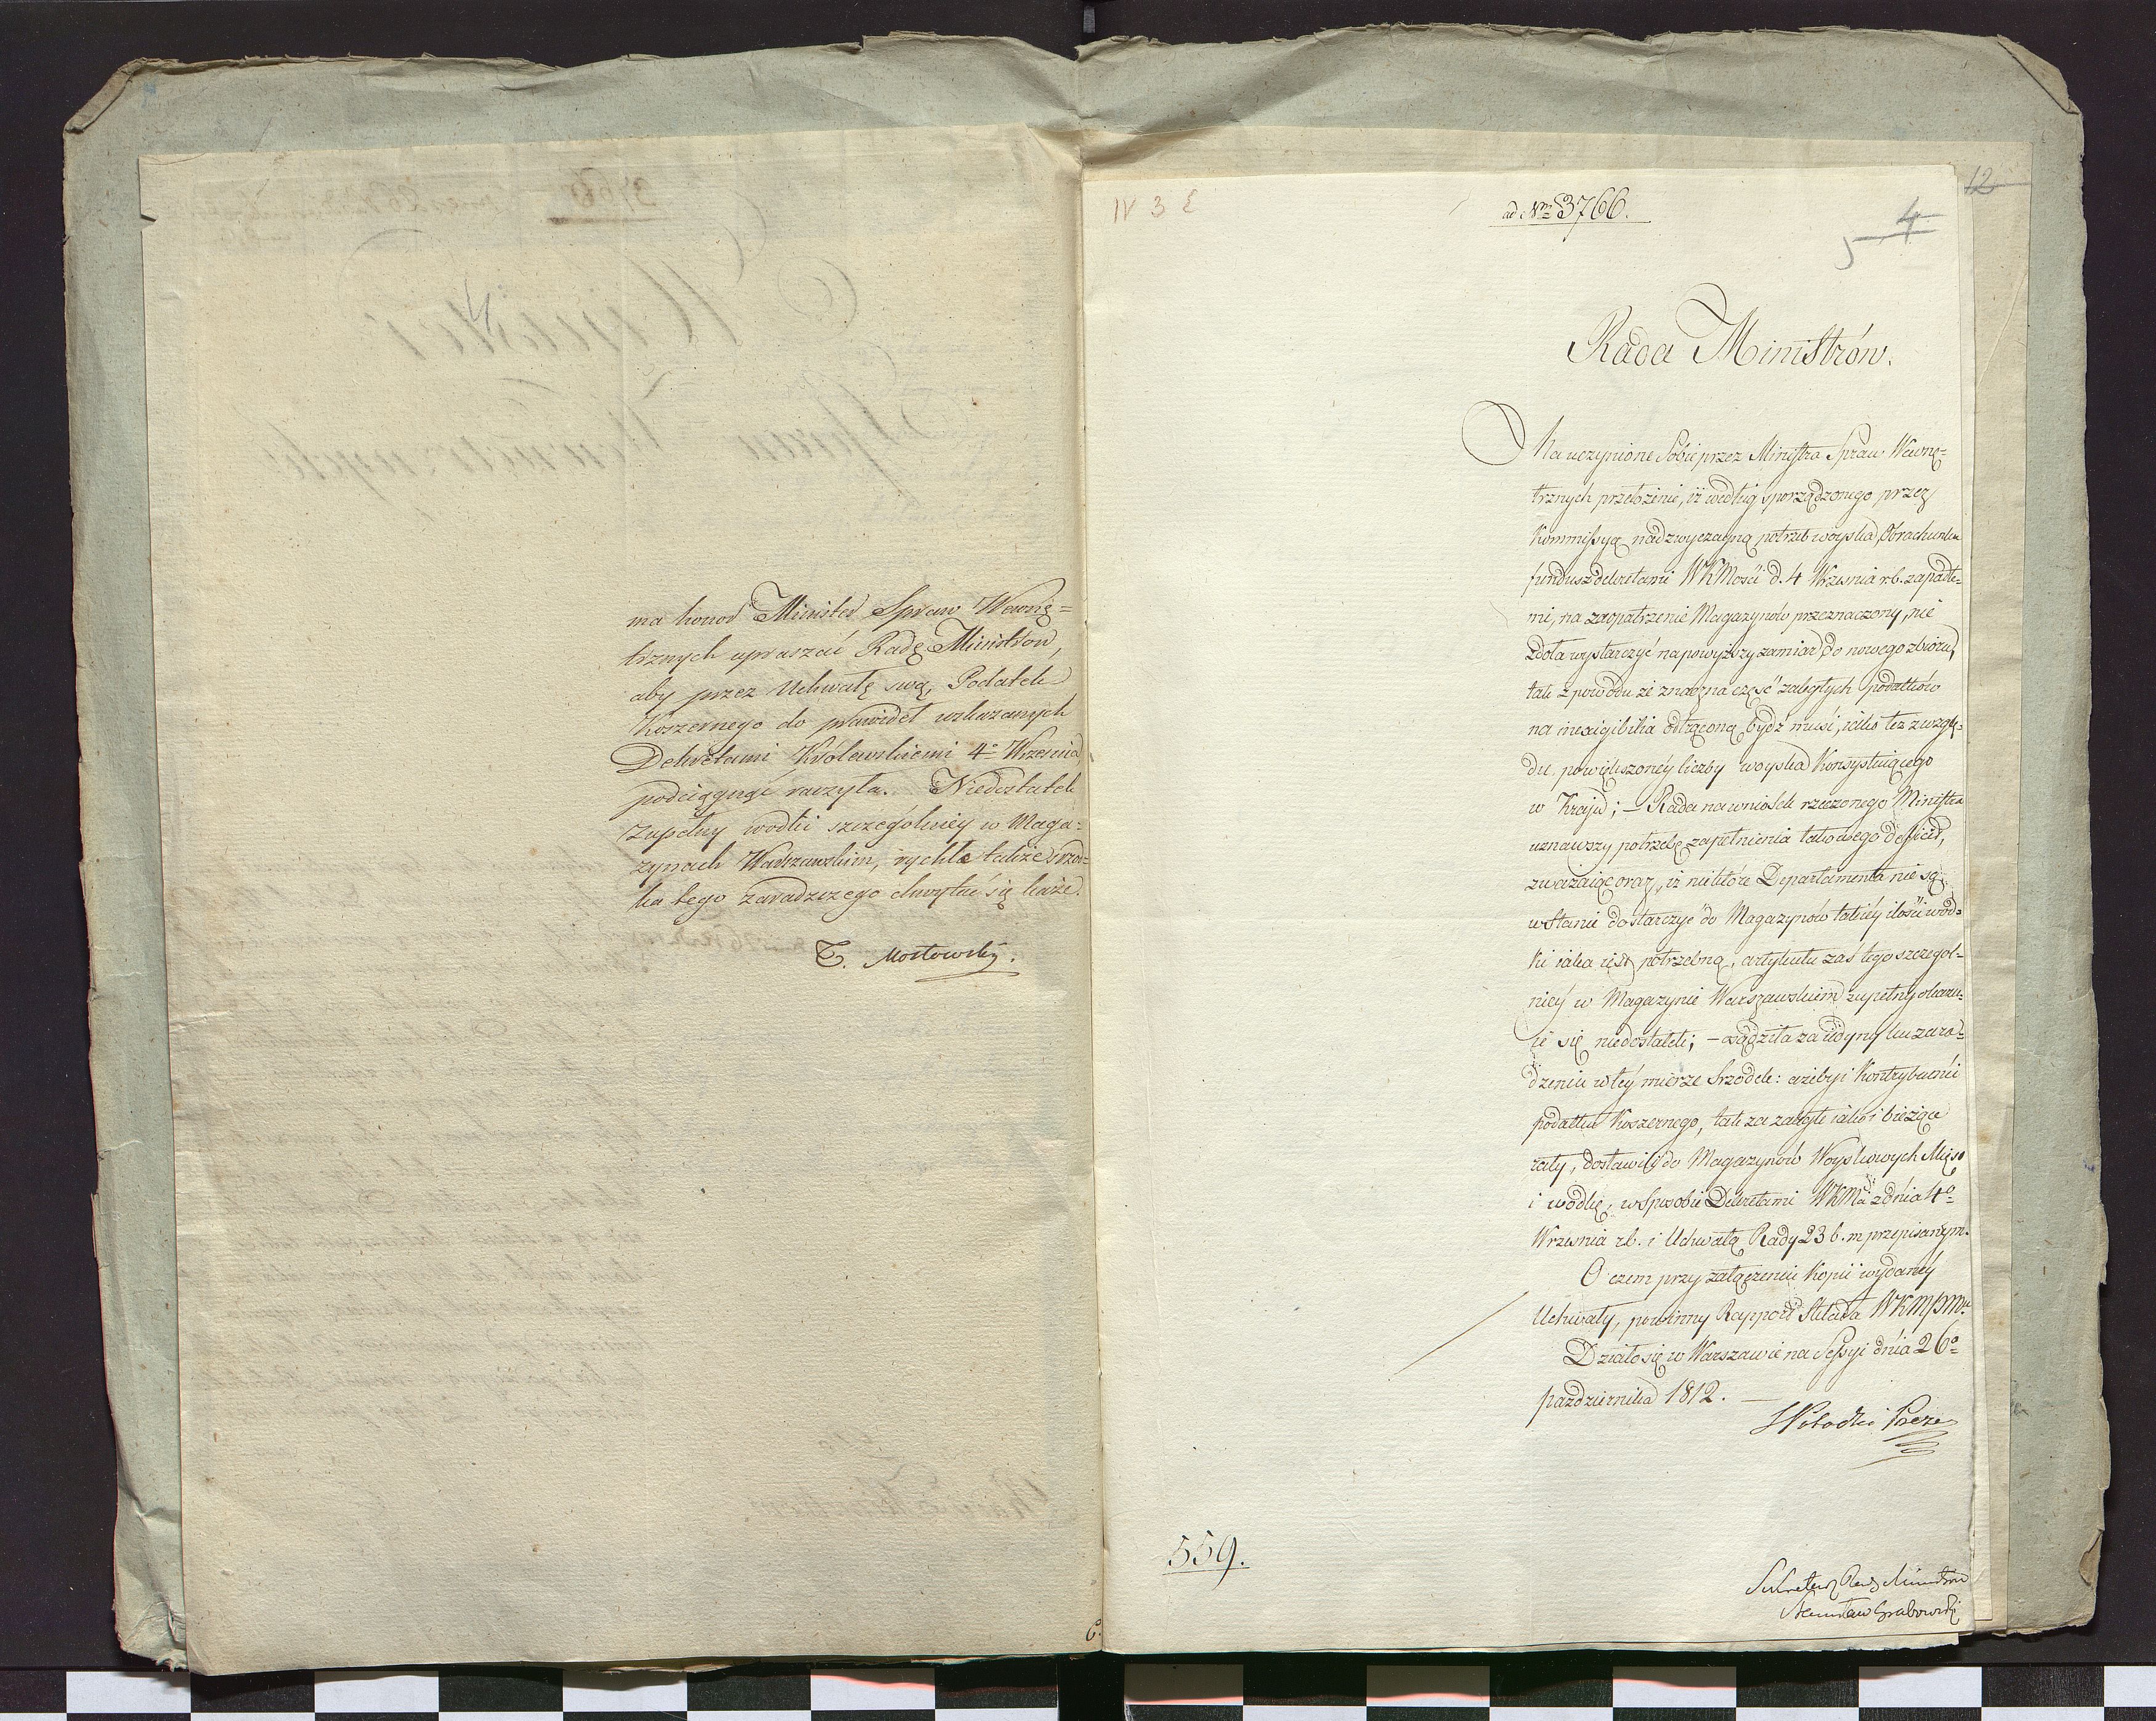 ma honor Minister Spraw Wewnę=
trznych upraszać Radę Ministrow,
aby przez Uchwałę swą, Podatek
Koszernego do prawideł wskazanych
Dekretami Królewskiemi 4º Września
podciągnąć raczyła. Niedostatek
zupełny wodki szczególniey w Maga=
zynach Warszawskim, rychłe także
ka tego zaradczego chwytać się każe.
T. Mostowski.
IV 3 E
ad Nrm 3766.
12
4
5
Rada Ministrów.
Na uczynione Sobie przez Ministra Spraw Wewnę=
trznych przełożenie, iż według sporządzonego przez
Kommissyą nadzwyczayną potrzeb woyska, Obrachunku
fundusz dekretami WKMości d. 4 Września r.b. zapadłe=
mi, na zaopatrzenie Magazynów przeznaczony, nie
zdoła wystarczyć na powyższy zamiar do nowego zbioru,
tak z powodu że znaczna część zaległych podatków
na inexigibilia odtrąconą bydź musi, iako też z wzglę=
du powiększoney liczby woyska Konsystuiącego
w Kraju; – Rada na wniosek rzeczonego Ministra
uznawszy potrzebę zapełnienia takowego deficit,
zważaiąc oraz, iż niektóre Departamenta nie są
w stanie dostarczyć do Magazynów takiéy ilości wód=
ki iaka iest potrzebną, artykułu zaś tego szczegól=
niey w Magazynie Warszawskiem zupełny okazu=
ie się niedostatek; – sądziła za iedyny ku zara=
dzeniu w tey mierze Srzodek: ażeby Kontrybuenci
podatku Koszernego, tak za zaległe iako i bieżące
raty, dostawili do Magazynów Woyskowych Mięso
i wodkę, w sposobie Dekretami WKMci z dnia 4º
Września r.b. i Uchwałą Rady 23 b.m przepisanym.
O czem przy załączeniu Kopii wydaney
Uchwały, powinny Rapport Składa WKMPMu
Działo się w Warszawie na Sessyi dnia 26º
października 1812. –
Prezes
559.
Sekretarz Rady Ministrów
Stanisław Grabowski
6.